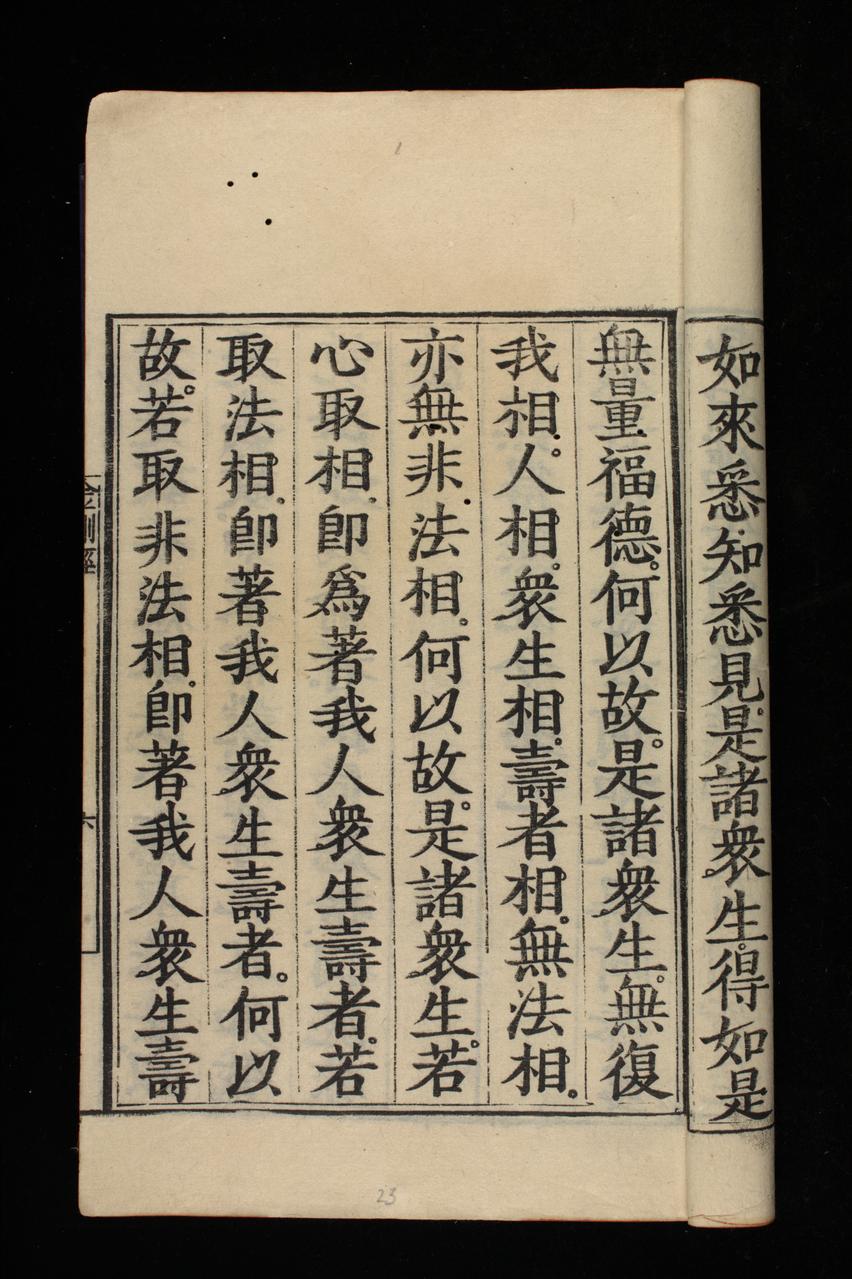 如來悉知悉見。是諸衆生。得如是
無量福德。何以故。是諸衆生。無復
我相。人相。衆生相。壽者相。無法相。
亦無非法相。何以故。是諸衆生。若
心取相。卽爲著我人衆生壽者。若
取法相。卽著我人衆生壽者。何以
故。若取非法相。卽著我人衆生壽
金剛經
六
23